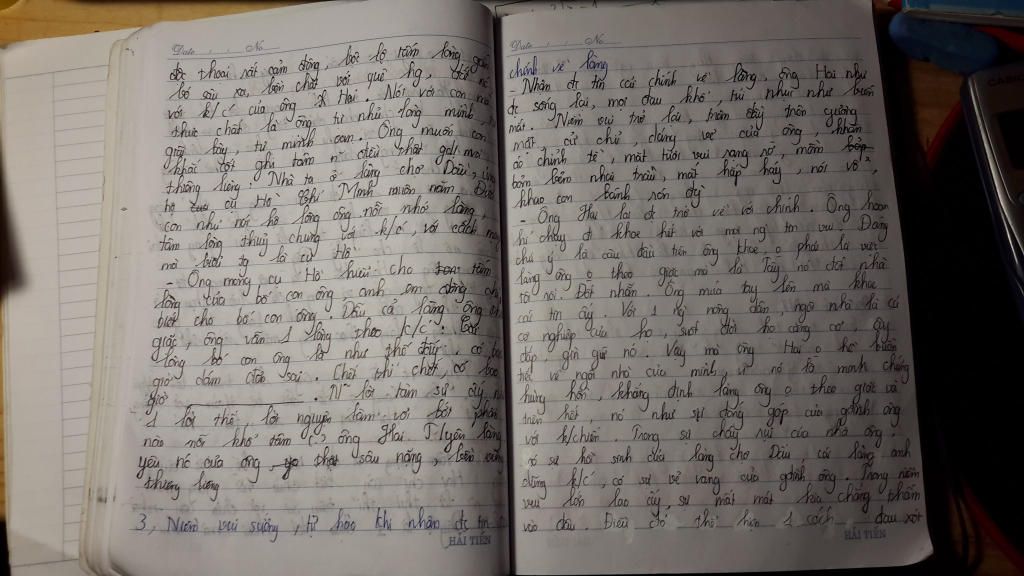 Date . . . No
độc thoại rất cảm động, bộc lộ tấm lòng gắn
bó sâu xa, bền chặt với quê hg,
với k/c của ông Hai. Nói với con mà
thực chất là ông tự nhủ lòng mình,
giãi bày, tự minh oan. Ông muốn con
khắc cốt ghi tâm n điều thật giản mà
thiêng liêng. Nhà ta ở làng chợ Dầu,
hộ cụ Hồ Chí Minh muôn năm. Đứa
con như nói hộ lòng ông nỗi nhớ làng,
tấm lòng thủy chung với k/c, với cách mạng
mà biểu tg là cụ Hồ
- Ông mong cụ Hồ hiểu cho tấm
lòng của bố con ông anh em đồng chí
biết cho bố con ông. Dẫu cả làng ông theo
giặc, ông vẫn 1 lòng theo k/c. Cái
lòng bố con ông là như thế đấy, có bao
giờ dám đơn sai. Chết thì chết, có bao
giờ . N lời tâm sự ấy
1 lời thề lời nguyện làm vơi bớt phần
nào nỗi khổ tâm ông Hai. T/yêu làng
yêu nc của ông thật sâu nặng, bền vững
thiêng liêng
3, Niềm vui sướng, tự hào khi nhận đc tin
HẢI TIẾN
Date . . . No
chính về làng
- Nhận đc tin cải chính về làng, ông Hai như
đc sống lại, mọi đau khổ, tủi nhục như biến
mất. Niềm vui trở lại, tràn đầy trên gương
mặt, cử chỉ, dáng vẻ của ông, khăn
áo chỉnh tề, mặt tươi vui rạng rỡ, mồm
bỏm bẻm nhai trầu, mắt hấp háy,
khao con bánh rán đg
- Ông Hai lại đc trở về với chính. Ông hoan
hỉ chạy đi khoe hết với mọi ng tin vui. Đáng
chú ý là câu đầu tiên ông khoe o phải là việc
làng ông o theo giặc mà là Tây nó đốt nhà
tôi rồi. Đốt nhẵn. Ông múa tay lên mà khoe
cái tin ấy. Với 1 ng nông dân, ngôi nhà là cả
cơ nghiệp của họ, suốt đời họ căng cơ, xây
đắp gìn giữ nó. Vậy mà ông Hai o hề buồn
tiếc về ngôi nhà của mình, vì nó là minh chứng
hùng hồn, khẳng định làng ông o theo giặc và
trên hết nó như sự đóng góp của gđình ông
với k/chiến. Trong sự cháy rụi của nhà ông,
có sự hồi sinh của làng chợ Dầu, cái làng anh
dũng k/c, có sự vẻ vang của gđình ông. Trong niềm
vui lớn lao ấy sự mất mát kia chẳng thấm
vào đâu. Điều đó thể hiện 1 cách đau xót
HẢI TIẾN
CASIO